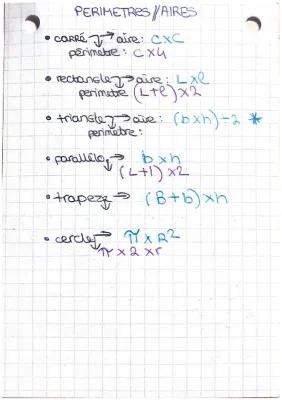 PERIMETRES//AIRES
• carré → aire: C×C
périmetre: C×4
• rectangle → aire: L×l
perimetre (L+l)×2
• triangle → aire: (b×h)÷2 *
perimetre:
• parallélo → b×h
(L+l)×2
• trapeze → (B+b)×h
• cercle → π×R²
π×2×r